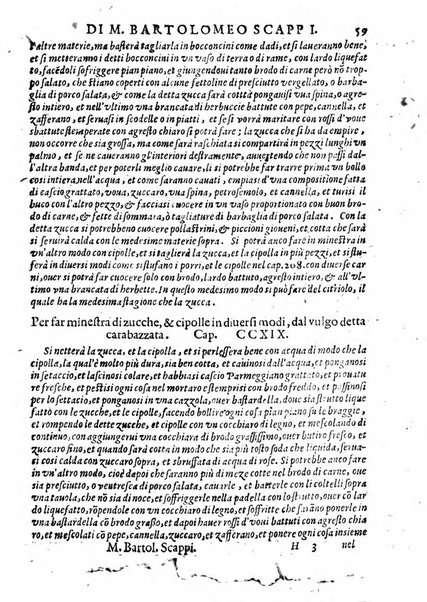 DI M. BARTOLOMEO SCAPPI. 59
l'altre materie, ma basterà tagliarla in bocconcini come dadi, et si laueranno bene,
et si metteranno i detti bocconcini in vn uaso di terra o di rame, con lardo liquefat
to, facēdoli soffriggere pian piano, et giungendoui tanto brodo di carne però nō trop
po salato, che stiano coperti con alcune fettoline di presciutto uergellato, o barbaglia di
porco salato, & come la detta zucca sarà cotta ponganuisi vua spina, o agresto
intiero, et nell'vltimo vna brancata di herbuccie battute con pepe, cannella, et
zafferano, et seruasi in scodelle o in piatti, et se si vorrà maritare con rossi d'oua
sbattute stemperate con agresto chiaro si potrà fare; la zucca che si ha da empire,
non occorre che sia grossa, ma come sarà raschiata si compartirà in pezzi lunghi vn
palmo, et se ne caueranno gl'interiori destramente, auuertendo che non passi dal
l'altra banda, et per poterli meglio cauare, li si potrà far prima leuare vn bollo
cosi intiera nell'acqua, et come saranno cauati, empiasi d'vna compositione fatta
di cascio grattato, voua, zuccaro, vua spina, petrosemolo, et cannella, et turisi il
buco con l'altro pezzo, & facciasi cuocere in vn vaso che stia largo con brodo grasso
di carne, & fette di sommata, ò tagliature di barbaglia di porco salata. Con la
detta zucca si potrebbeno cuocere pollastrini, & piccioni giouani, et cotta che sarà
si seruirà calda con le medesime materie sopra. Si potrà anco far in minestra in
vn'altro modo con cipolle, et si taglierà la zucca, et la cipolla in più pezzi, et si po
tranno stufare a vn modo come si stufano i porri, et le cipolle nel cap. 208. con diuerse car
ni, ouer si potrà far cuocere solo con brodo, lardo battuto, agresto intiero, & all'vl
timo vna brancata di herbette. In questo medesimo modo si può fare del citriolo, il
quale ha la medesima stagione che la zucca.
Per far minestra di zucche, & cipolle in diuersi modi, dal vulgo detta
carabazzata. Cap. CCXIX.
Si netterà la zucca, et la cipolla, et si perlesserà bene con acqua di modo che la
cipolla, la qual'è molto più dura, sia ben cotta, et cauinosi dall'acqua, et ponganosi
in setaccio, et lascinosi colare, et habbiasi cascio Parmeggiano grattato, et prouature
fresche, et pestisi ogni cosa nel mortaro et stemprisi con brodo freddo, et passinosi
per lo setaccio, et ponganosi in vna cazzola, ouer bastardella, doue sia strutto lique
fatto con le zucche, et le cipolle, facendo bollire ogni cosa pian piano su le braggie,
et rompendo le dette zucche, et cipolle con vn cocchiaro di legno, et mescolando di
continuo, con aggiungerui vna cocchiara di brodo grassissimo, ouer butiro fresco, et
zafferano, pepe, & cannella di modo che sia più tosto soda che liquida, seruen
dosi calda con zuccaro sopra, et sbruffata di acqua di rose. Si potrebbe anco fare
in vn'altro modo, cioè dapoi che saranno più di meze cotte nel brodo di carne, oue
sia presciutto, o ventresca di porco salata, cauarle, et batterle con li coltelli sopra
vna tauola, che nō sia di noce, et soffriggerle nella padella con lo strutto, ouer cō lar
do liquefatto, rōpendole con vn cocchiaro di legno, & cosi soffritte metterle in
vna bastardella cō brodo grasso, et dapoi hauer rossi d'voui battuti con agresto chia
ro, et mescolati cō pepe, cannella, zuccaro, et zafferano, et di tal mistura mettere
M. Bartol. Scappi. H 3 nel